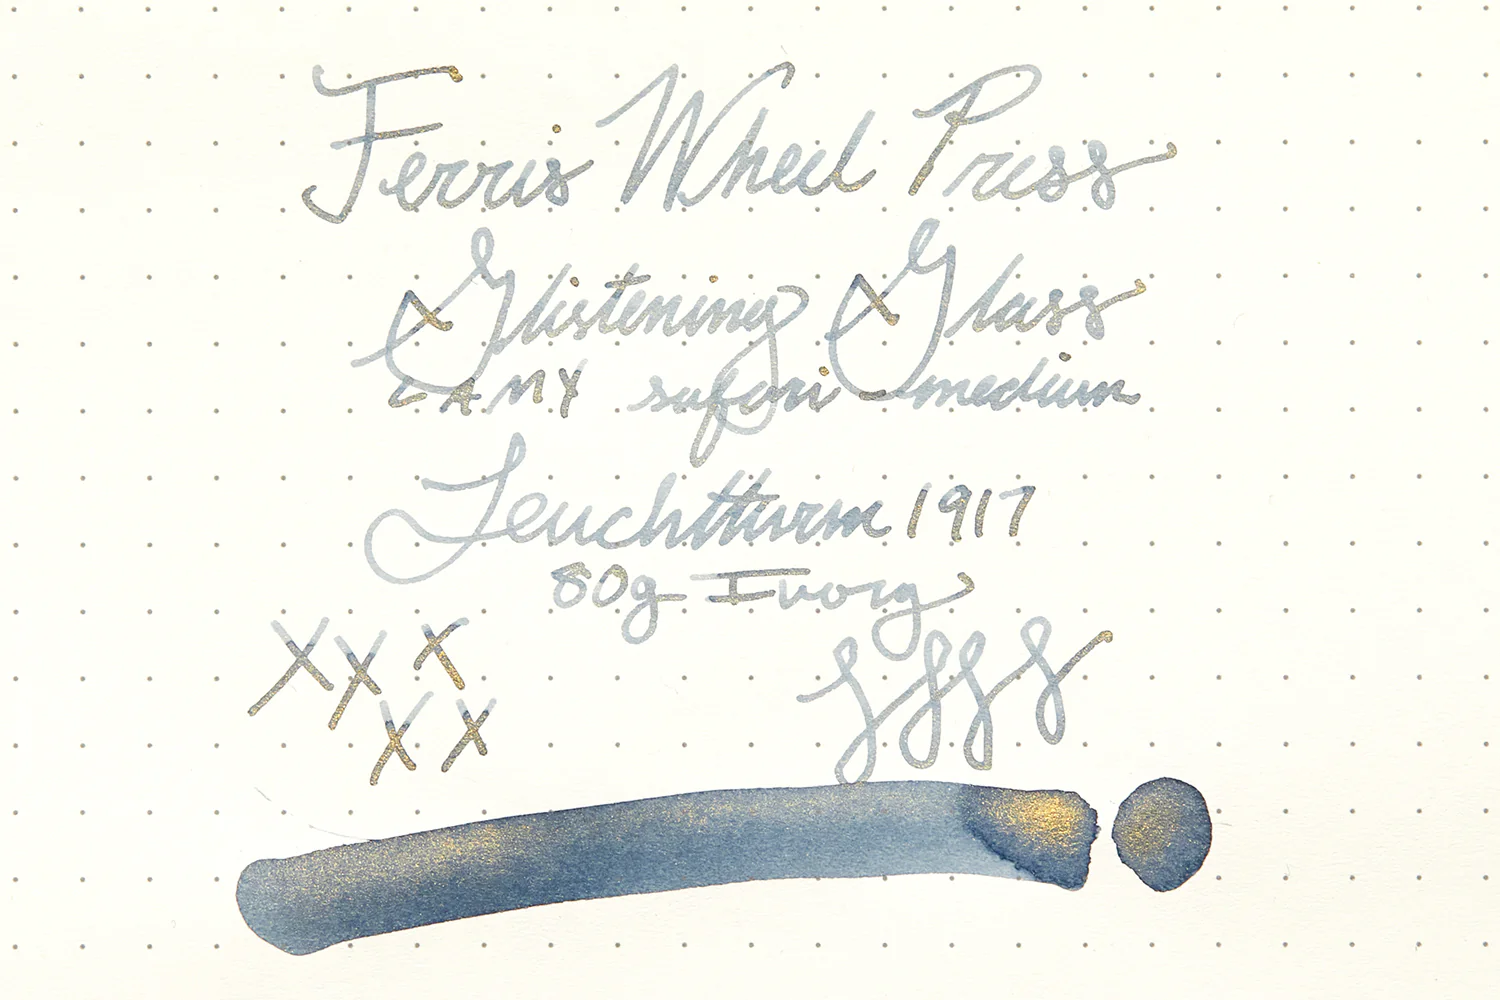 Ferris Wheel Press
Glistening Glass
LAMY safari medium
Leuchtturm 1917
80g Ivory
XX X
X X